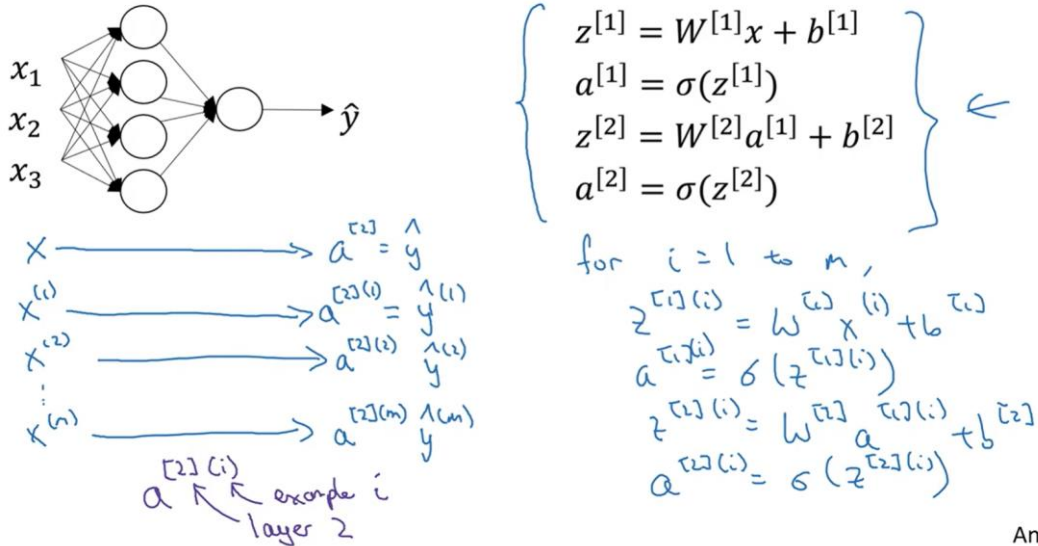 x₁
x₂
x₃
ŷ
z^[1] = W^[1]x + b^[1]
a^[1] = σ(z^[1])
z^[2] = W^[2]a^[1] + b^[2]
a^[2] = σ(z^[2])
x → a^[2] = ŷ
x^(1) → a^[2](1) = ŷ^(1)
x^(2) → a^[2](2) ŷ^(2)
⋮
x^(m) → a^[2](m) ŷ^(m)
a^[2](i)
example i
layer 2
for i = 1 to m,
z^[1](i) = W^[1] x^(i) + b^[1]
a^[1](i) = σ(z^[1](i))
z^[2](i) = W^[2] a^[1](i) + b^[2]
a^[2](i) = σ(z^[2](i))
An